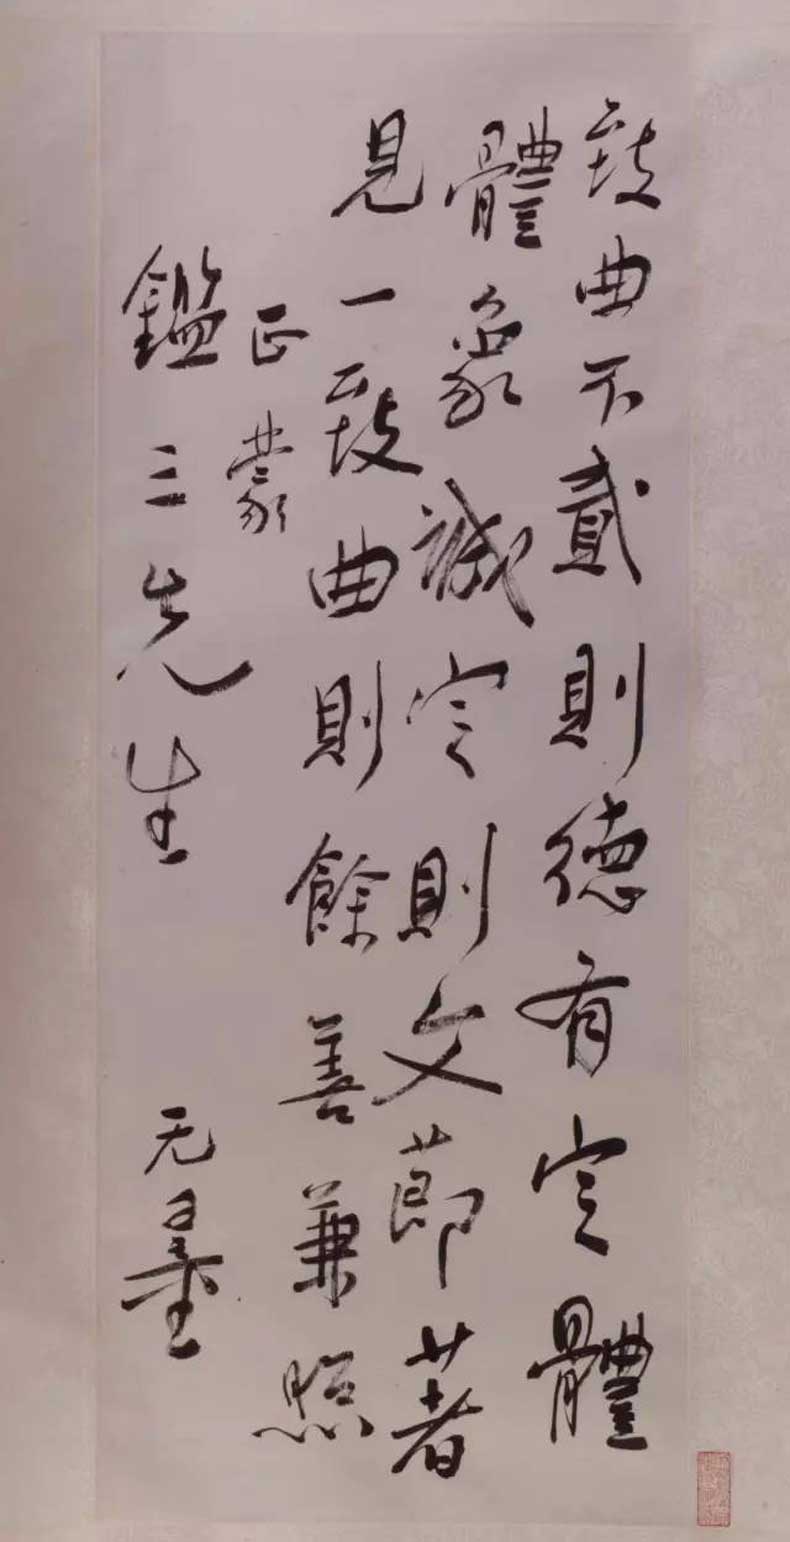 致曲不貳則德有定體
體象誠定則文節著
見一致曲則餘善兼照
正蒙
鑑三先生
无量